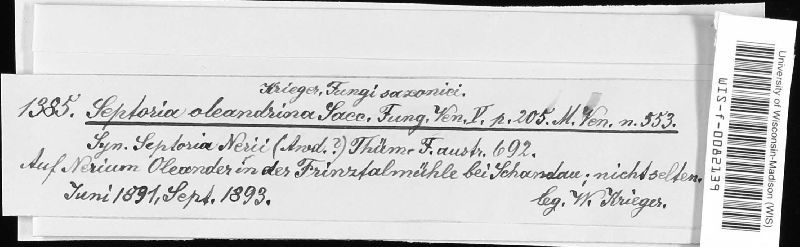 Krieger, Fungi saxonici.
1385. Septoria oleandrina Sacc. Fung. Ven. V. p. 205. M. Ven. n. 553.
Syn. Septoria Nerii (Awd.?) Thüm. F. austr. 692.
Auf Nerium Oleander in der Prinztalmühle bei Schandau, nicht selten.
Juni 1891, Sept. 1893.
leg. W. Krieger.
University of Wisconsin-Madison (WIS)
WIS-f-0082139